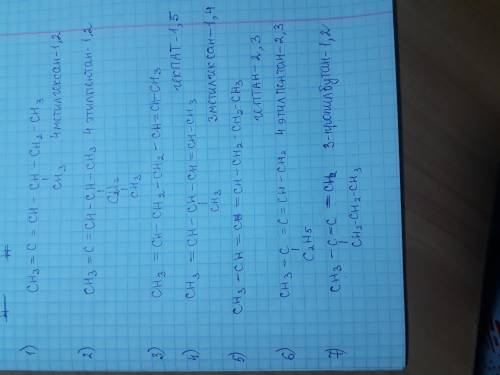 1) CH3 = C = CH - CH - CH2 - CH3
CH3
4 метилгексан-1,2
2) CH3 = C = CH - CH - CH3 4 этилпентан-1,2
CH2
CH3
3) CH3 = CH - CH2 - CH2 - CH = CH - CH3
гекпат-1,5
4) CH3 = CH - CH - CH = CH - CH3
CH3
3метилгексан-1,4
5) CH3 - CH = CH = CH - CH2 - CH2 - CH3
гептан-2,3
6) CH3 - C = C = CH - CH2 4 этилпентан-2,3
C2H5
7) CH3 - C = C = CH2 3-пропилбутан-1,2
CH2-CH2-CH3